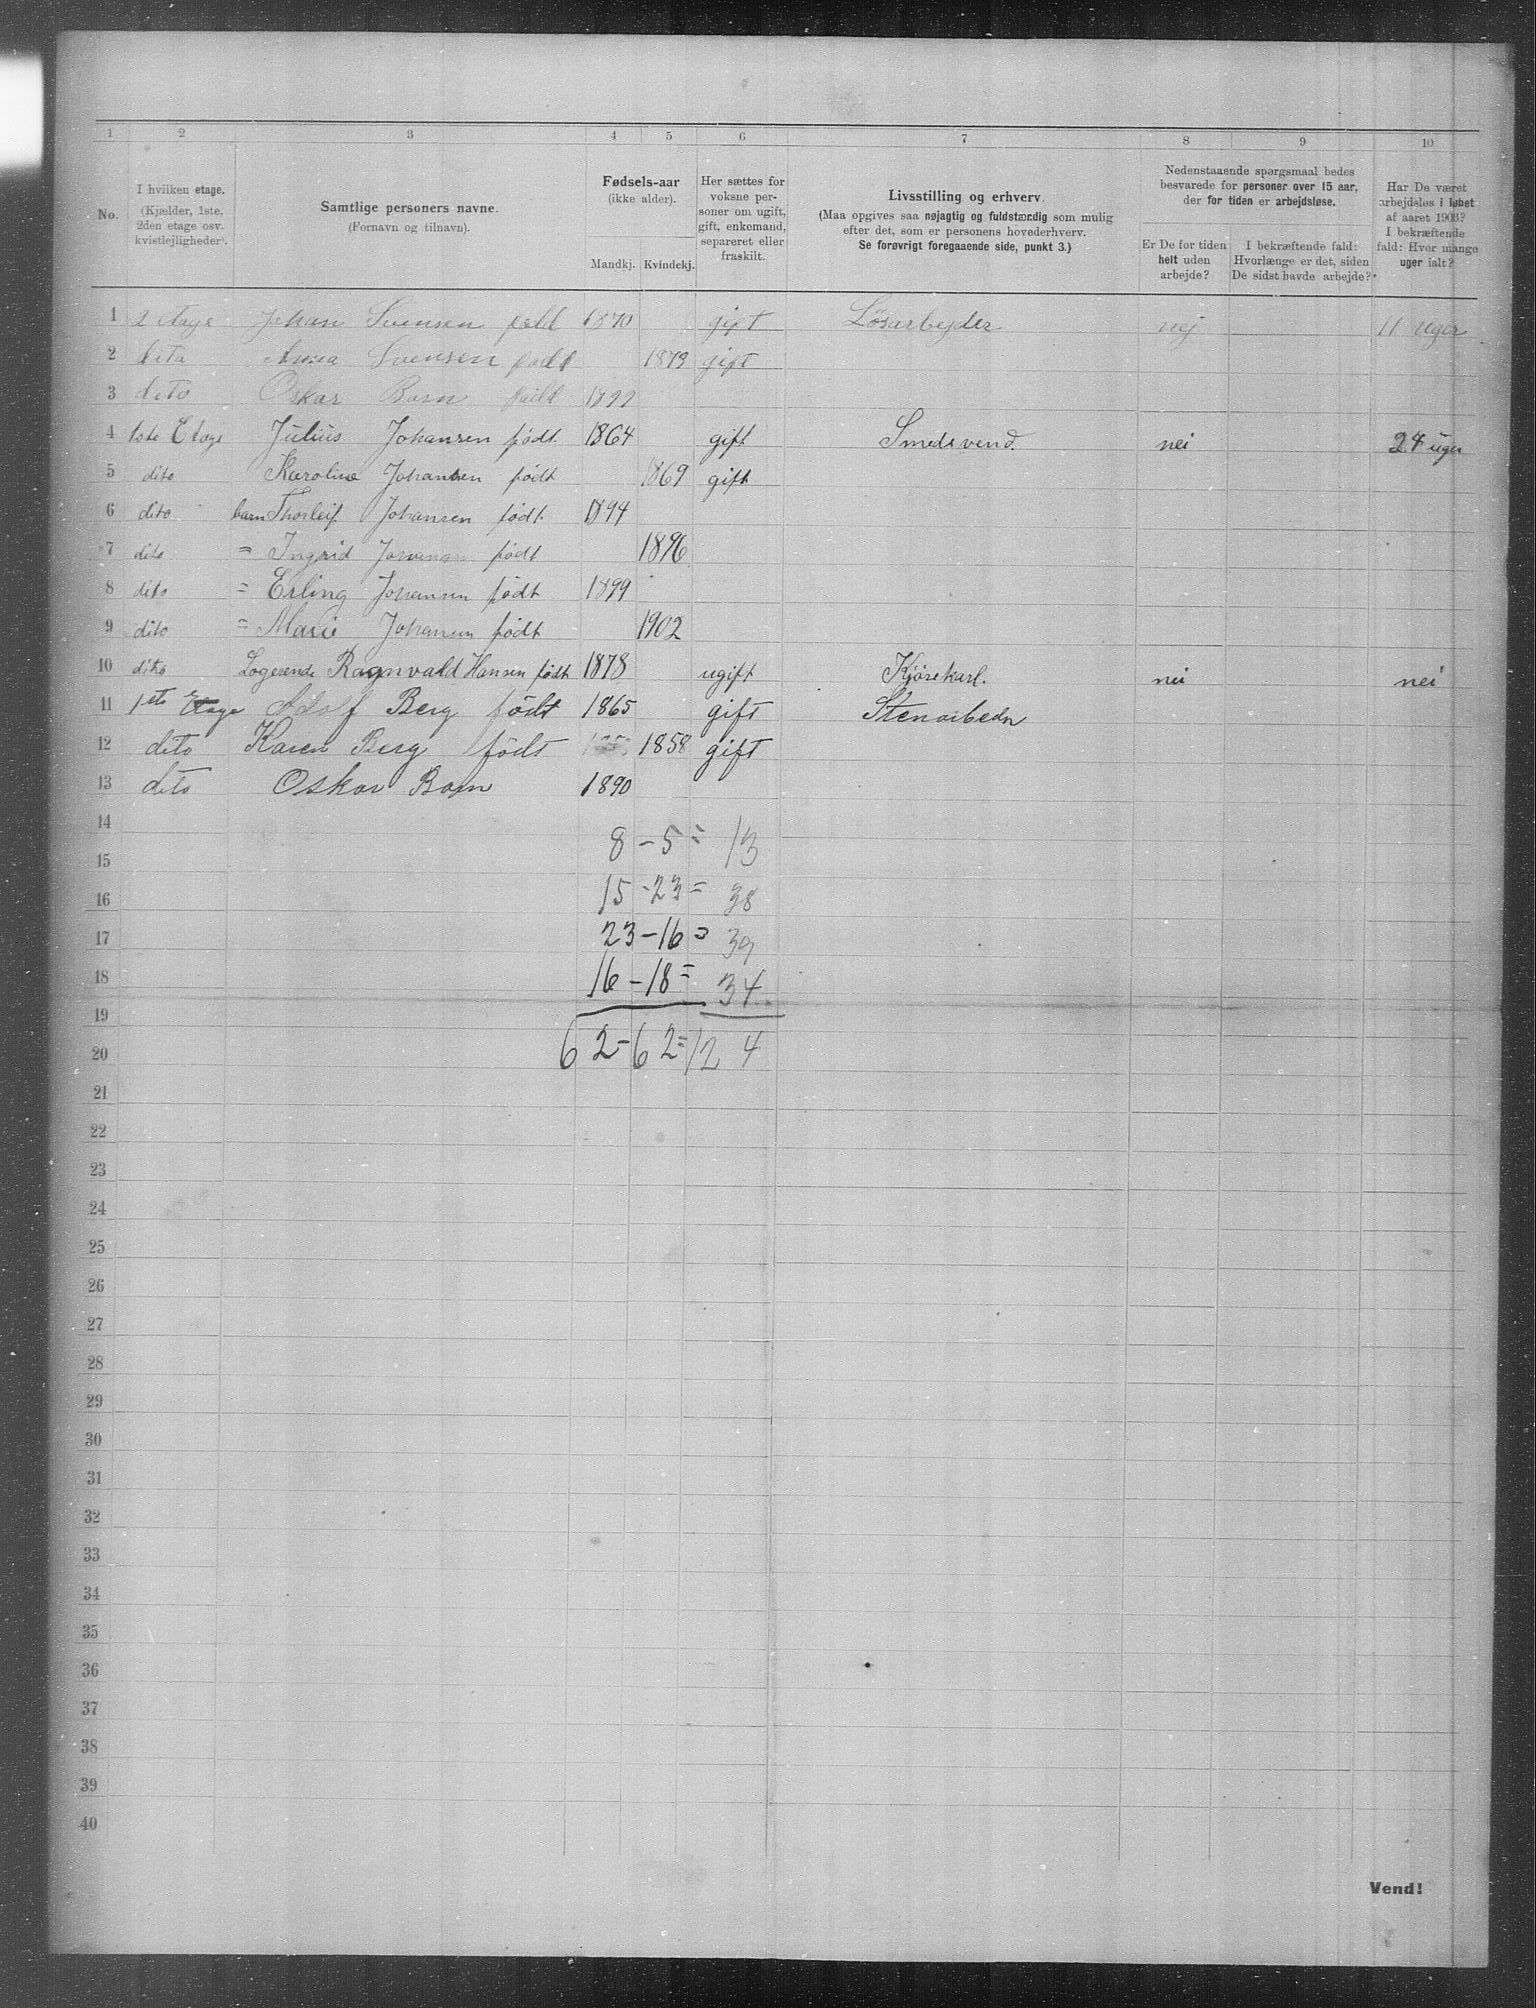 1 2 3 4 5 6 7 8 9 10
No.
I hvilken etage. (Kjælder, 1ste, 2den etage osv. kvistlejligheder).
Samtlige personers navne. (Fornavn og tilnavn).
Fødsels-aar (ikke alder).
Mandkj. Kvindekj.
Her sættes for voksne personer om ugift, gift, enkemand, separeret eller fraskilt.
Livsstilling og erhverv.
(Maa opgives saa nøjagtig og fuldstændig som mulig efter det, som er personens hovederhverv.
Se forøvrigt foregaaende side, punkt 3.)
Nedenstaaende spørgsmaal bedes besvarede for personer over 15 aar, der for tiden er arbejdsløse.
Er De for tiden helt uden arbejde?
I bekræftende fald: Hvorlænge er det, siden De sidst havde arbejde?
Har De været arbejdsløs i løbet af aaret 1903? I bekræftende fald: Hvor mange uger ialt?
1 2 Etage Johan Svensen født 1870 gift Løsarbejder nej 11 uger
2 dito Anna Svensen født 1873 gift
3 dito Oskar Barn født 1899
4 1ste Etage Julius Johansen født 1864 gift Smedsvend. nei 24 uger
5 dito Karoline Johansen født 1869 gift
6 dito barn Thorleif Johansen født 1894
7 dito = Ingrid Johansen født 1896
8 dito = Erling Johansen født 1899
9 dito = Marie Johansen født 1902
10 dito Logerende Ragnvald Hansen født 1878 ugift Kjørekarl. nei nei
11 1ste Etage Adolf Berg født 1865 gift Stenarbedr
12 dito Karen Berg født 1858 gift
13 dito Oskar Barn 1890
14 8 - 5 = 13
15
16 15 - 23 = 38
17 23 - 16 = 39
18 16 - 18 = 34
19
20 62 - 62 = 124
21
22
23
24
25
26
27
28
29
30
31
32
33
34
35
36
37
38
39
40
Vend!